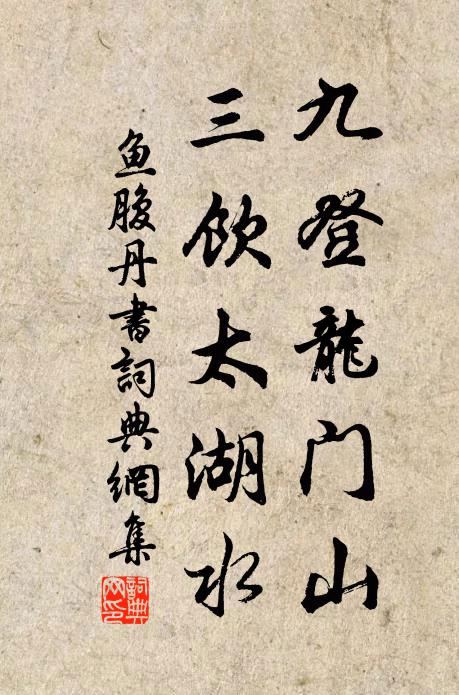 九登龍门山
三飲太湖水
鱼腹丹書詞典網集
詞典网印